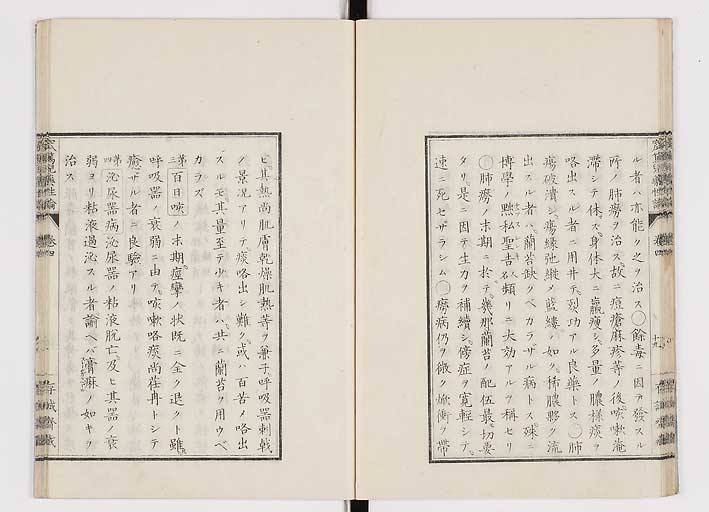 ル者ハ亦能ク之ヲ治ス○餘毒ニ因テ發スル
所ノ肺癆ヲ治ス故ニ痘瘡麻疹等ノ後咳嗽淹
滯シテ休ズ身体大ニ羸瘦シ多量ノ膿樣痰ヲ
咯出スル者ニ用井テ烈功アル良藥トス○肺
瘍破潰シ瘍緣弛縱メ藍縷ノ如ク稀膿夥ク流
出スル者ハ蘭苔缺クベカラザル病トス殊ニ
博學ノ黙私聖吉人名頻リニ大効アルヲ稱セリ
○肺癆ノ末期ニ於テ幾那蘭苔ノ配伍最切要
タリ是ニ因テ生力ヲ補續シ傍症ヲ寬輕シテ
速ニ死セザラシム○癆病仍ヲ微ク焮衝ヲ帶
ビ其熱尚肌膚乾燥肌熱等ヲ兼子呼吸器刺戟
ノ景況アリテ痰咯出シ難ク或ハ百苦ノ咯出
スルモ其量至テ少キ者ハ共ニ蘭苔ヲ用ウベ
カラズ
第三百日咳ノ末期痙攣ノ状既ニ全ク退クト雖
呼吸器ノ衰弱ニ由テ咳嗽咯痰尚荏冉トシテ
癒ザル者ニ良驗アリ
第四泌尿器病泌尿器ノ粘液脱亡及ヒ其器ノ衰
弱ヨリ粘液過泌スル者諭ヘバ淯淋ノ如キヲ
治ス
卷四